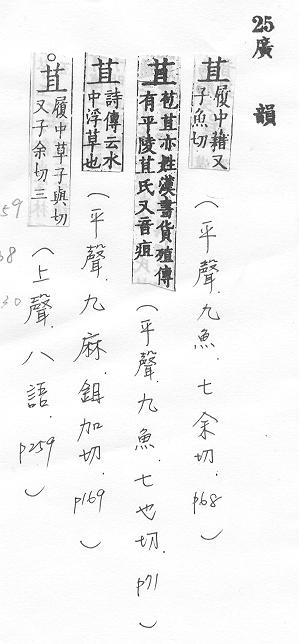 25廣韻
苴履中藉又
子魚切
(平聲.九魚.七余切.p68)
苴苞苴亦姓漢書貨殖傳
有平陵苴氏又音疽
(平聲.九魚.七也切.p71)
苴詩傳云水
中浮草也
(平聲.九麻.鉏加切.p169)
○苴履中草子與切
又子余切三
(上聲.八語.p259)